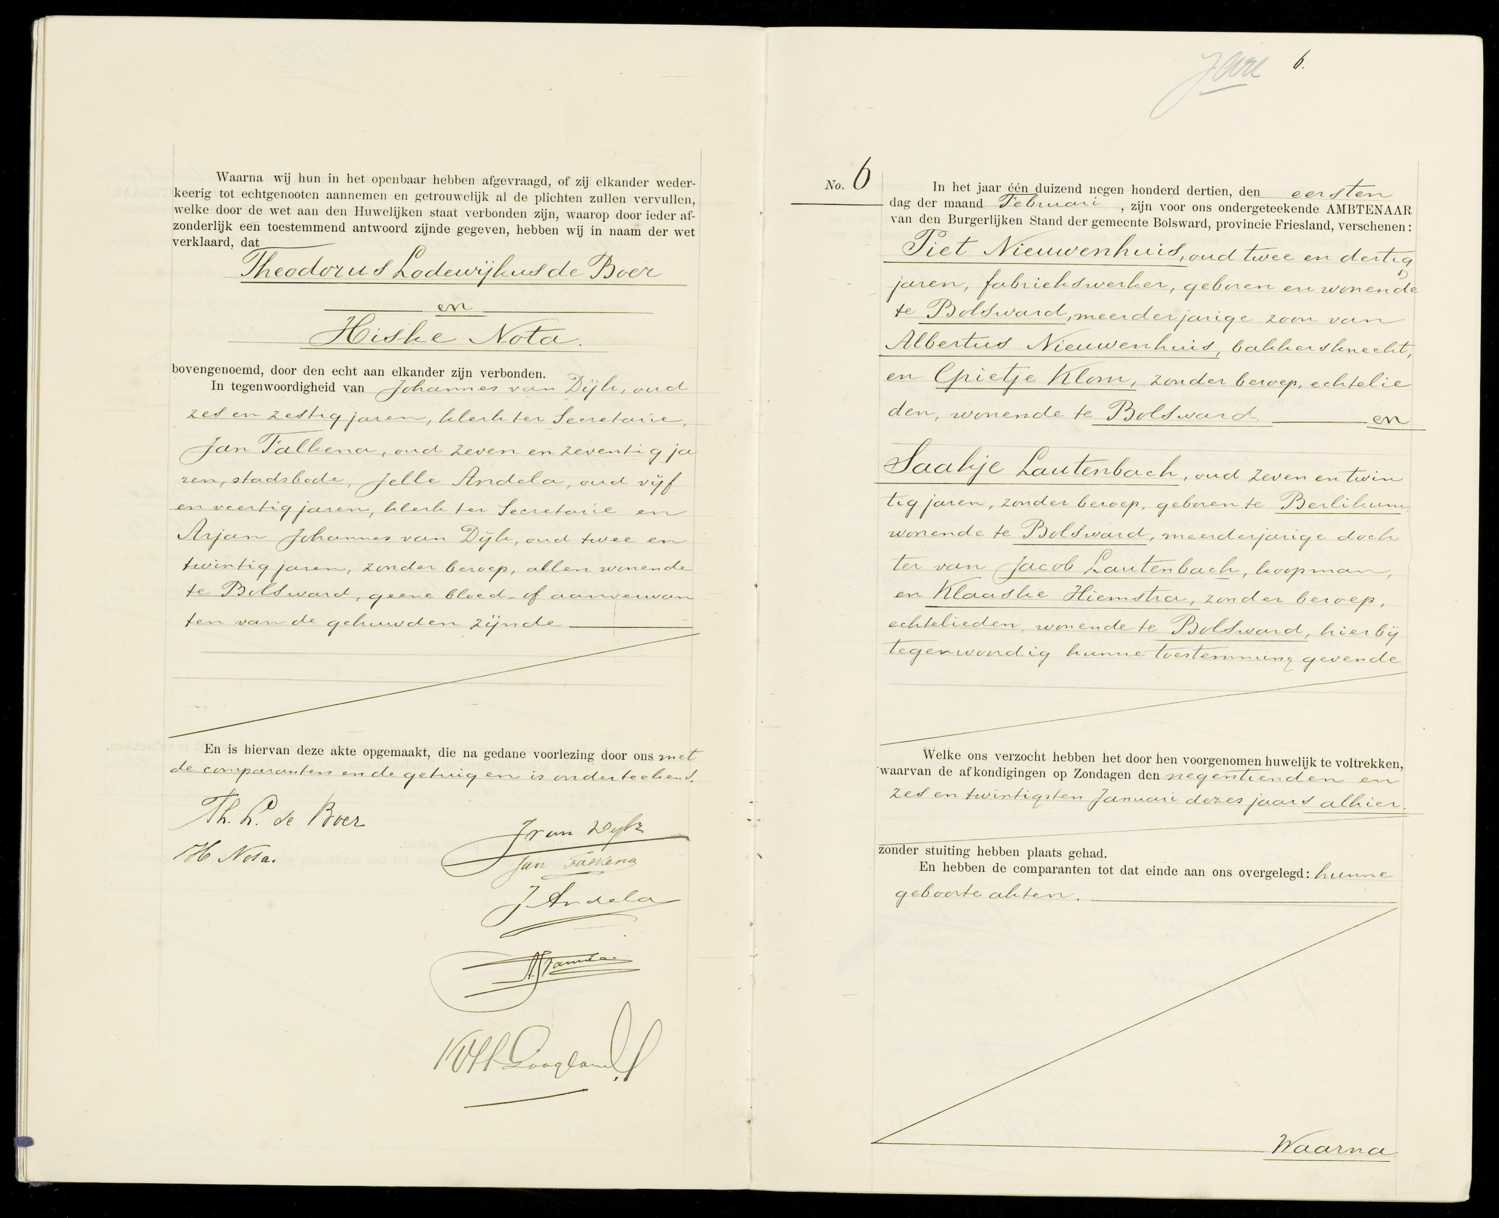 Waarna wij hun in het openbaar hebben afgevraagd, of zij elkander weder-
keerig tot echtgenooten aannemen en getrouwelijk al de plichten zullen vervullen,
welke door de wet aan den Huwelijken staat verbonden zijn, waarop door ieder af-
zonderlijk een toestemmend antwoord zijnde gegeven, hebben wij in naam der wet
verklaard, dat
Theodorus Lodewijkus de Boer
en
Hiske Nota.
bovengenoemd, door den echt aan elkander zijn verbonden.
In tegenwoordigheid van Johannes van Dijk, oud
zes en zestig jaren, klerk ter Secretarie,
Jan Falkena, oud zeven en zeventig ja
ren, stadsbode, Jelle Andela, oud vijf
en veertig jaren, klerk ter Secretarie en
Arjan Johannes van Dijk, oud twee en
twintig jaren, zonder beroep, allen wonende
te Bolsward, geene bloed- of aanverwan
ten van de gehuwden zijnde
En is hiervan deze akte opgemaakt, die na gedane voorlezing door ons met
de comparanten en de getuigen is onderteekend.
Th. L. de Boer
H Nota.
J van Dijk
Jan Falkena
J Andela
6.
No. 6
In het jaar één duizend negen honderd dertien, den eersten
dag der maand Februari, zijn voor ons ondergeteekende AMBTENAAR
van den Burgerlijken Stand der gemeente Bolsward, provincie Friesland, verschenen:
Piet Nieuwenhuis, oud twee en dertig
jaren, fabriekswerker, geboren en wonende
te Bolsward, meerderjarige zoon van
Albertus Nieuwenhuis, bakkersknecht,
en Grietje Klom, zonder beroep, echtelie
den, wonende te Bolsward en
Saakje Lautenbach, oud zeven en twin
tig jaren, zonder beroep, geboren te Berlikum,
wonende te Bolsward, meerderjarige doch
ter van Jacob Lautenbach, koopman,
en Klaaske Hiemstra, zonder beroep,
echtelieden, wonende te Bolsward, hierbij
tegenwoordig hunne toestemming gevende
Welke ons verzocht hebben het door hen voorgenomen huwelijk te voltrekken,
waarvan de afkondigingen op Zondagen den negentienden en
zes en twintigsten Januari dezes jaars alhier.
zonder stuiting hebben plaats gehad.
En hebben de comparanten tot dat einde aan ons overgelegd: hunne
geboorte akten.
Waarna